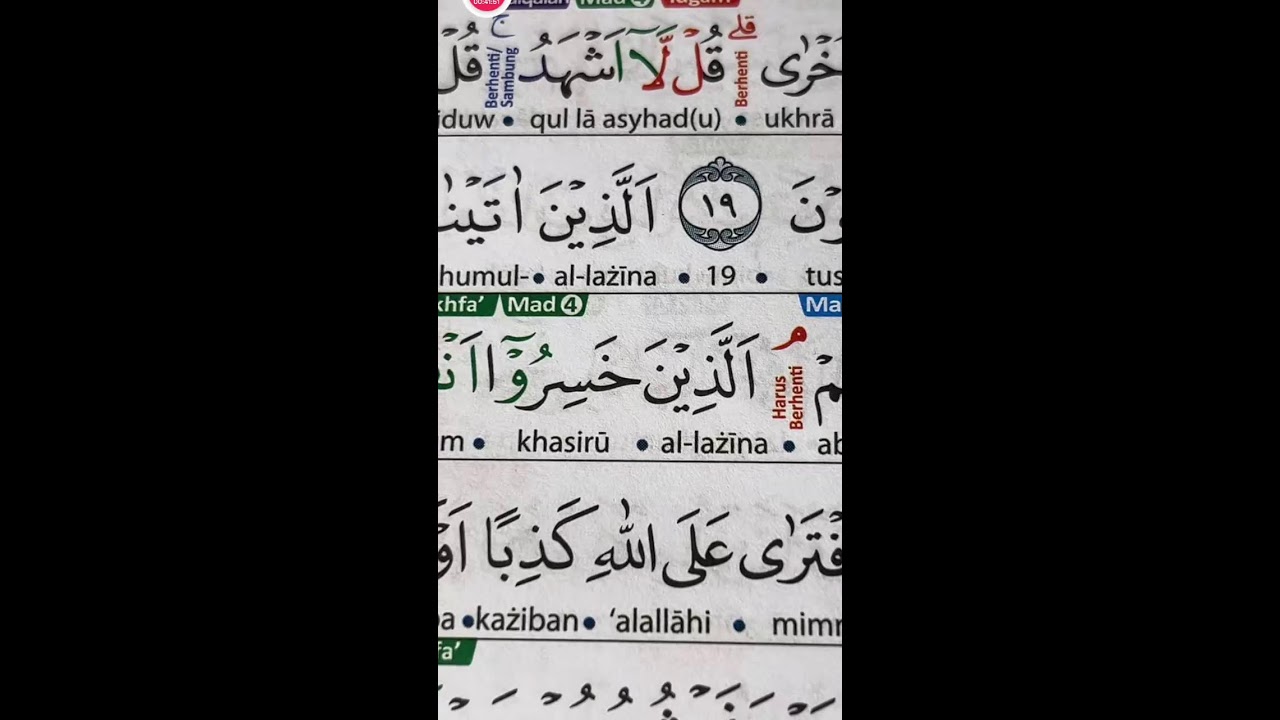 Mad 4
خْرٰى ۗ قُلْ لَّآ اَشْهَدُ ۚ قُلْ
قلے
Berhenti
ج
Berhenti/
Sambung
ukhrā • qul lā asyhad(u) •
وْنَ ١٩ اَلَّذِيْنَ اٰتَيْنٰ
humul- • al-lażīna • 19 • tus
khfa’ Mad 4 Ma
مْ ۘ اَلَّذِيْنَ خَسِرُوْٓا اَنْ
Harus
Berhenti
m • khasirū • al-lażīna • ab
فْتَرٰى عَلَى اللّٰهِ كَذِبًا اَوْ
ba • każiban • ‘alallāhi • mimm
fa’